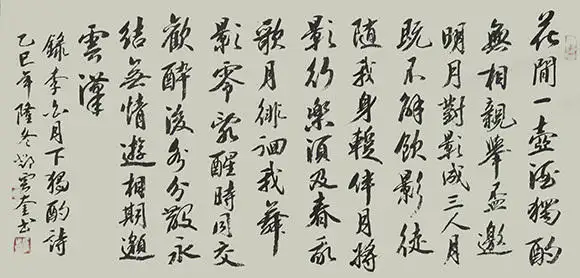 花間一壺酒獨酌
無相親舉盃邀
明月對影成三人月
既不解飲影徒
隨我身暫伴月將
影行樂須及春我
歌月徘徊我舞
影零亂醒時同交
歡醉後各分散永
結無情遊相期邈
雲漢
錄李白月下獨酌詩
乙巳年隆冬雲奎書